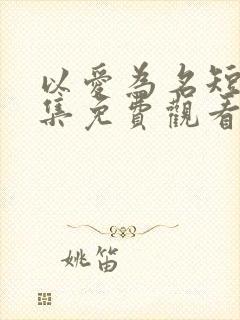 以愛為名短
集免費觀看
姚笛